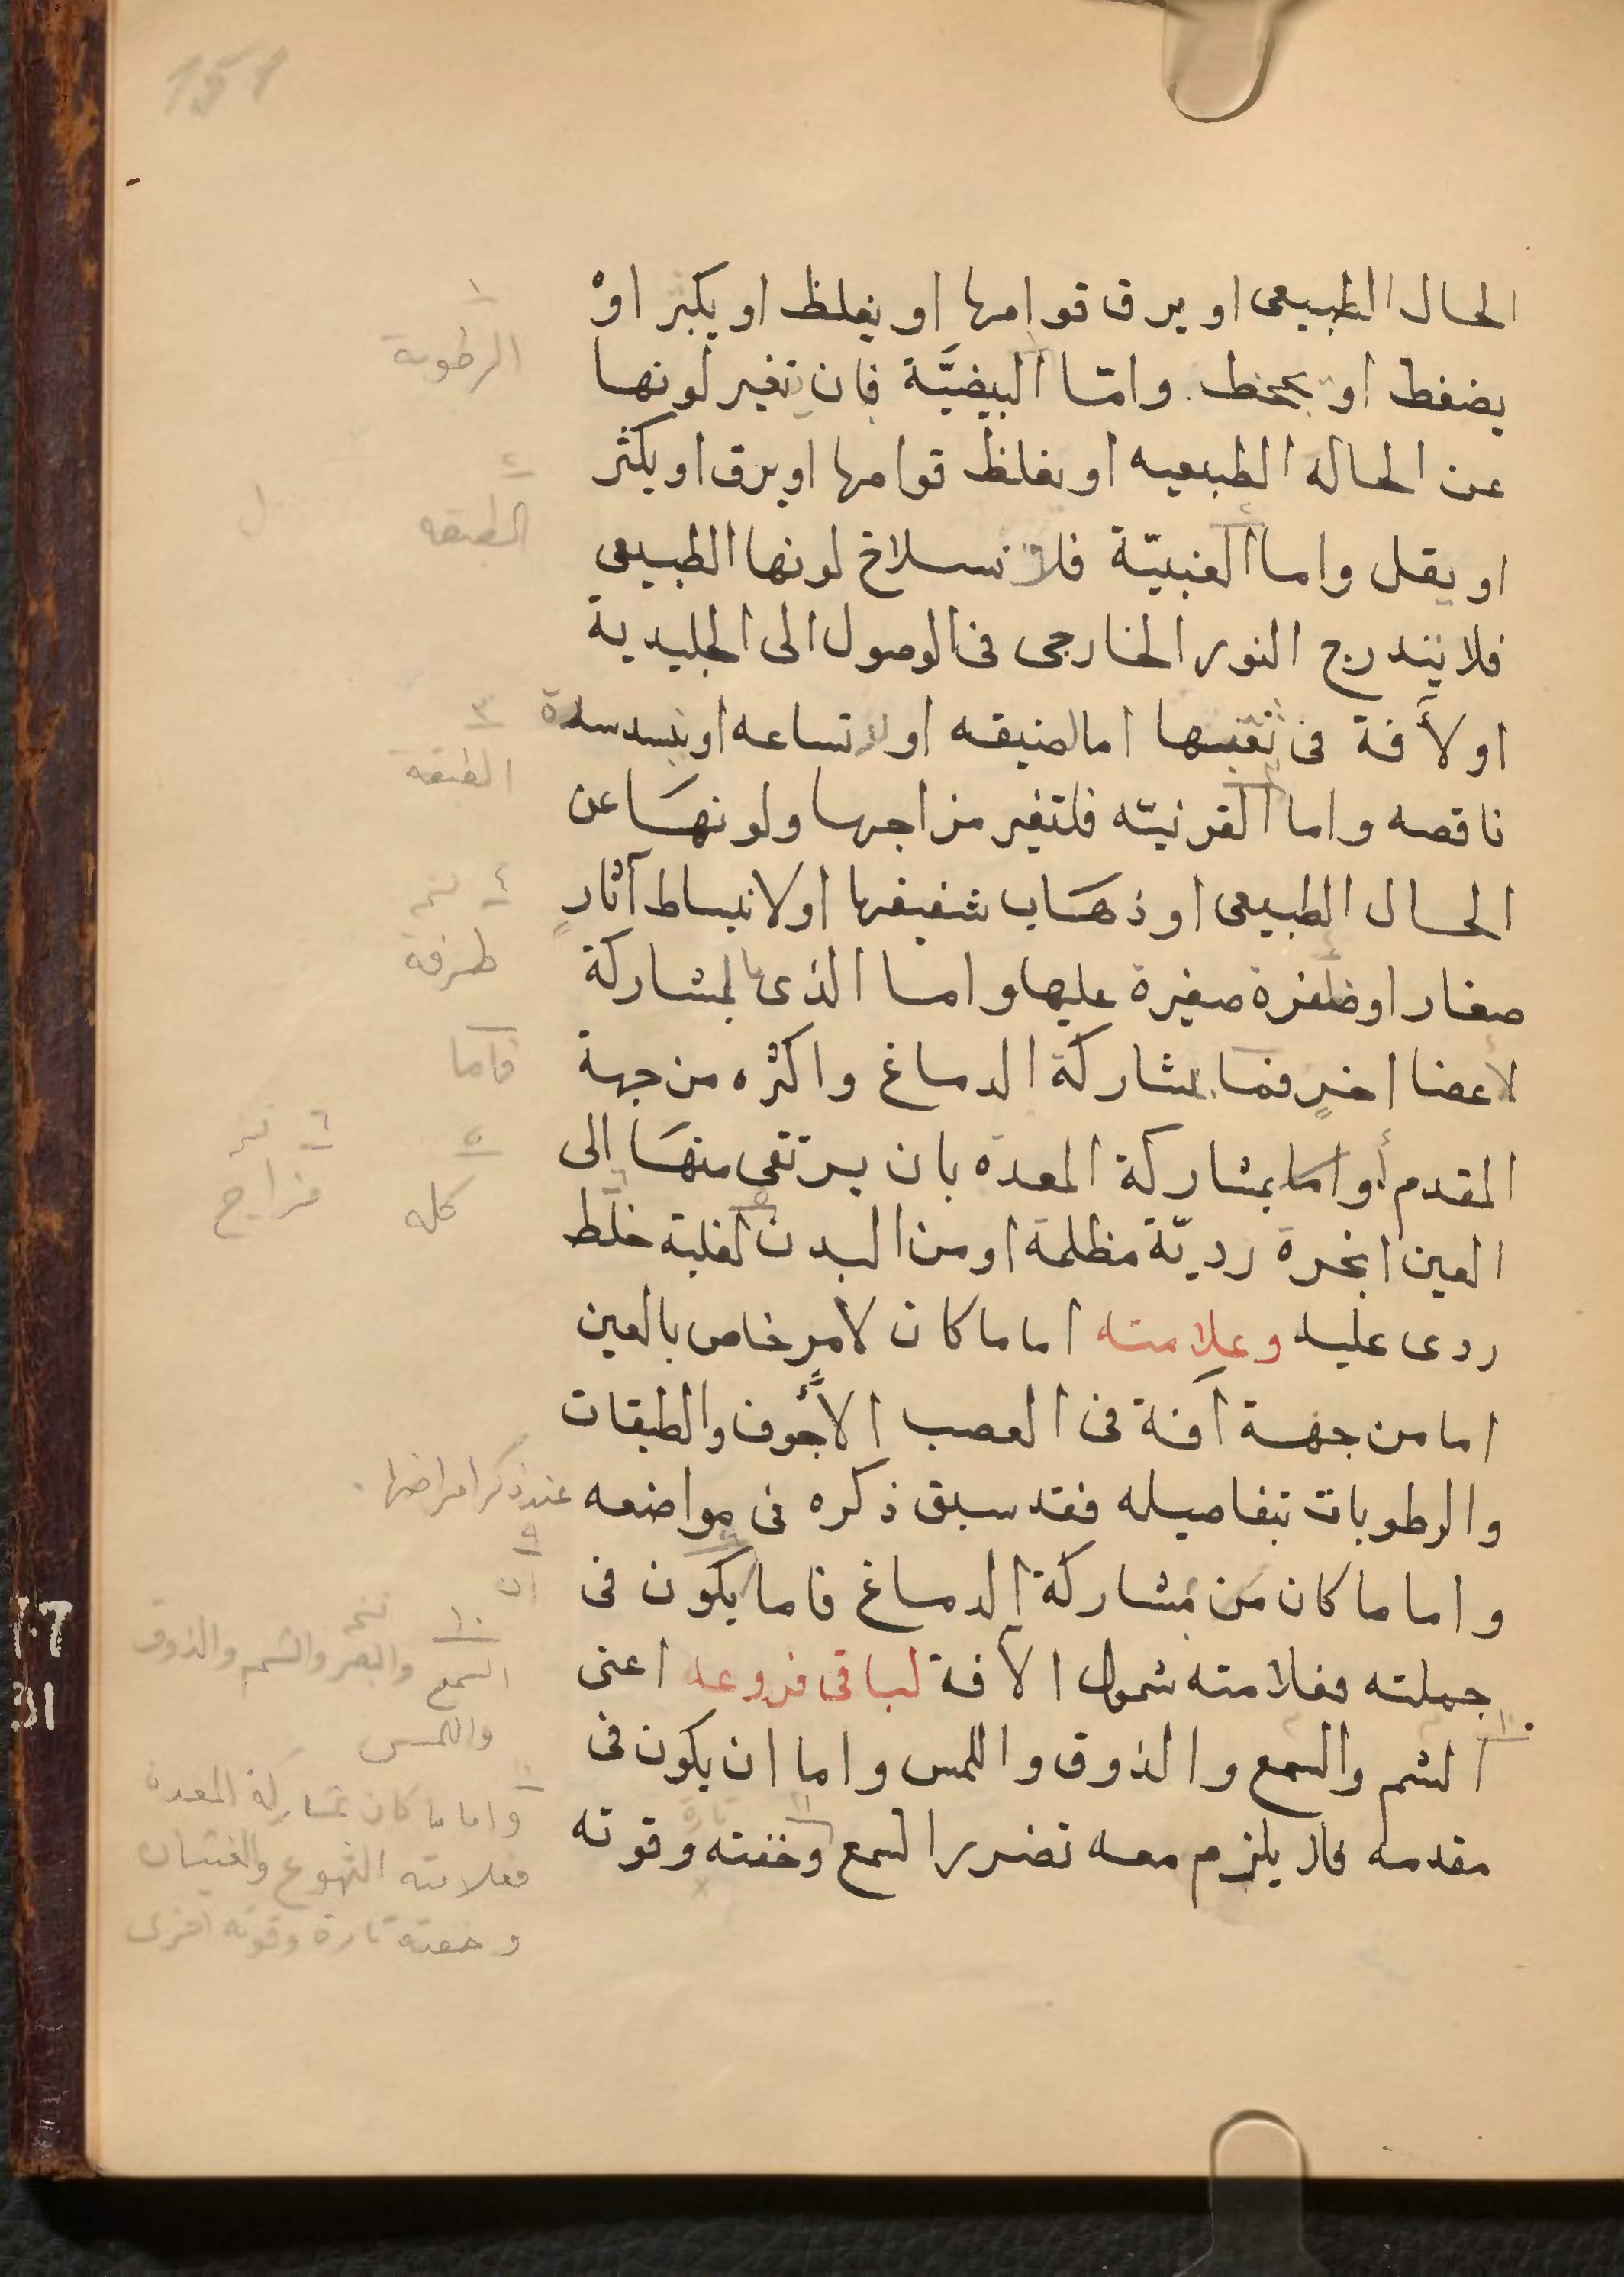 151
الحال الطبيعى او يرق قوامها او يغلظ او يكبر او
يضغط او يجحظ. وامّا البيضيَّة فان يتغير لونها
عن الحالة الطبيعيه او يغلظ قوامها او يرق او يكثر
او يقل واما العنبيّة فلانسلاخ لونها الطبيعى
فلا يتدرج النور الخارجى فى الوصول الى الجليدية
او لأفة فى ثقبها اما لضيقه او لاتساعه او يسد سدة
ناقصه واما القرنيّه فلتغير مزاجها ولونها عن
الحال الطبيعى او ذهاب شفيفها او لانبساط آثارٍ
صغار او ظفرة صغيرة عليها واما الذى بالمشاركة
لاعضا اخرٍ فمّا بمشاركة الدماغ واكثره من جهة
المقدم أو اما بمشاركة المعدة بان يرتقى منها الى
العين ابخرة رديّة مظلمة او من البدن لغلبة خلط
ردى عليه وعلامته اما ما كان لامرٍ خاص بالعين
اما من جهة آفة فى العصب الأجوف والطبقات
والرطوبات بتفاصيله فقد سبق ذكره فى مواضعه عند ذكر امراضها
واما ما كان من مشاركة الدماغ فاما يكون فى
جملته فعلامته شمول الآفة لباقى فروعه اعنى
الشم والسمع والذوق واللمس واما ان يكون فى
مقدمه فلا يلزم معه تضرر السمع وخفته وقوته
١
الرطوبة
٢
الطبقه
٣
الطبقة
٤
طرفة
فاما
٥
كله
٦
مزاج
٩
ان
١٠
السمع والبصر والشم والذوق
واللمس
واما ما كان بمشاركة المعدة
فعلامته التهوع والغثيان
وخفته تارة وقوته اخرى